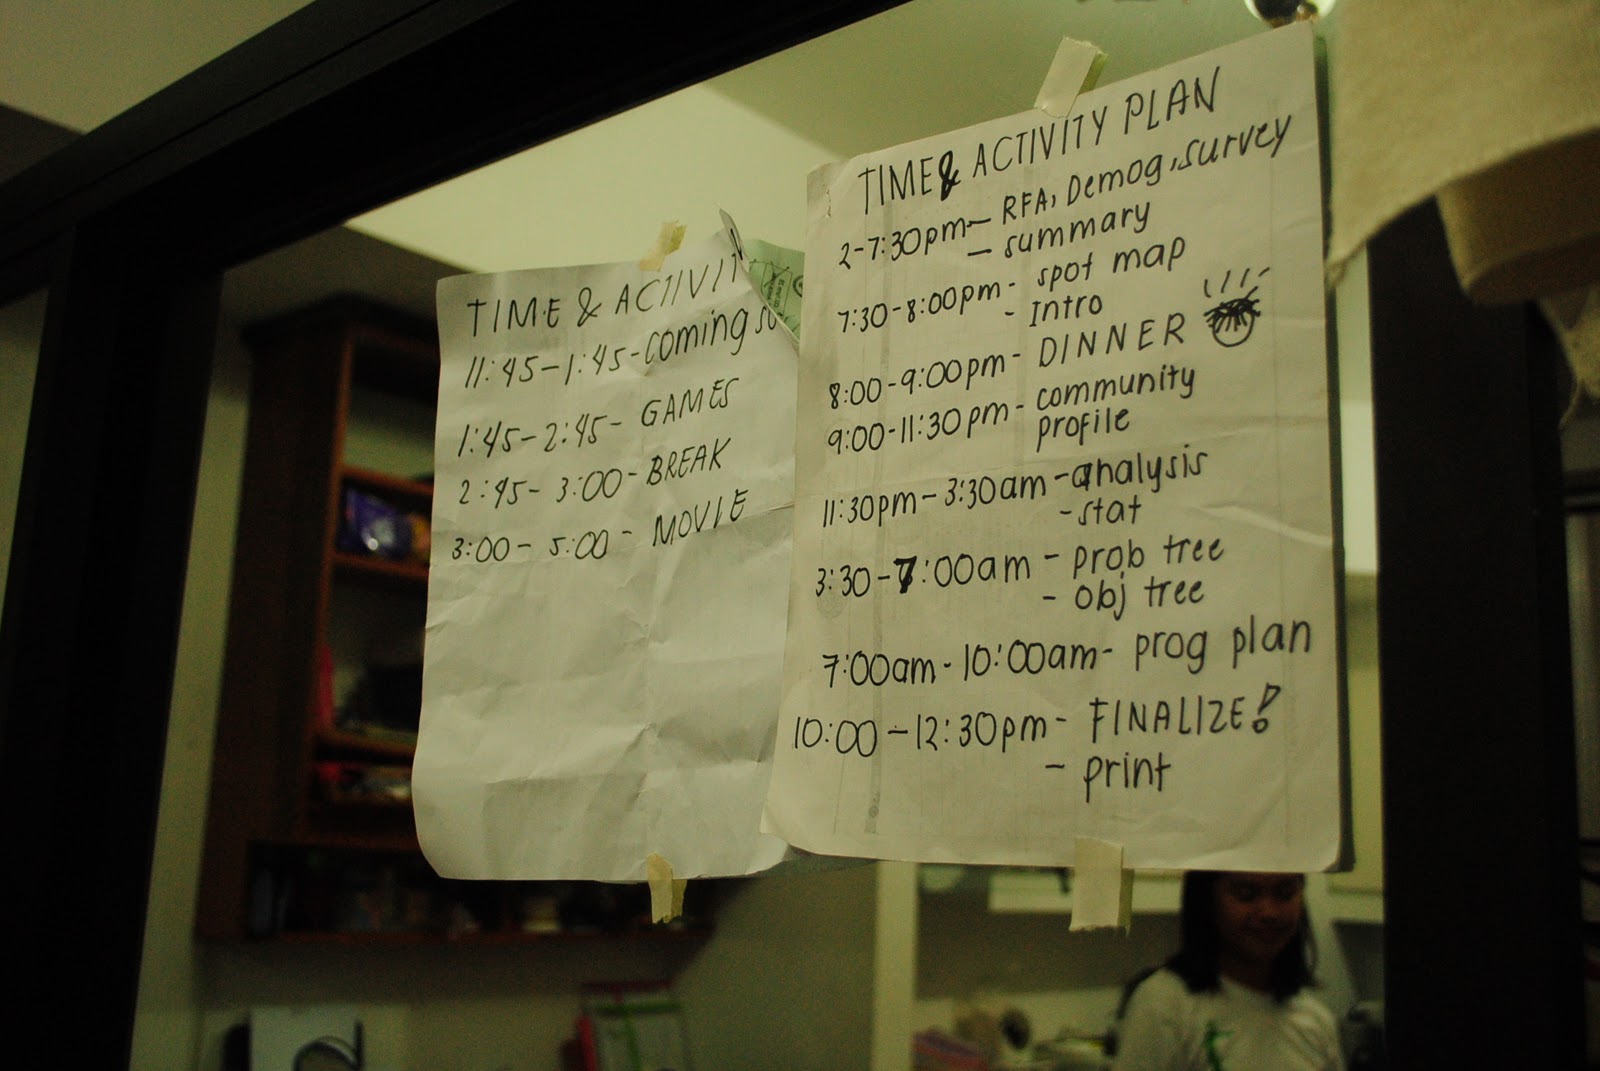 TIME & ACTIVIT
11:45-1:45-coming
1:45-2:45- GAMES
2:45- 3:00-BREAK
3:00- 5:00- MOVIE
TIME & ACTIVITY PLAN
2-7:30pm- RFA, Demog, survey
- summary
7:30-8:00pm- spot map
- Intro
8:00-9:00pm- DINNER
9:00-11:30pm- community
profile
11:30pm-3:30am-analysis
-stat
3:30-7:00am- prob tree
- obj tree
7:00am-10:00am- prog plan
10:00-12:30pm- FINALIZE!
- print